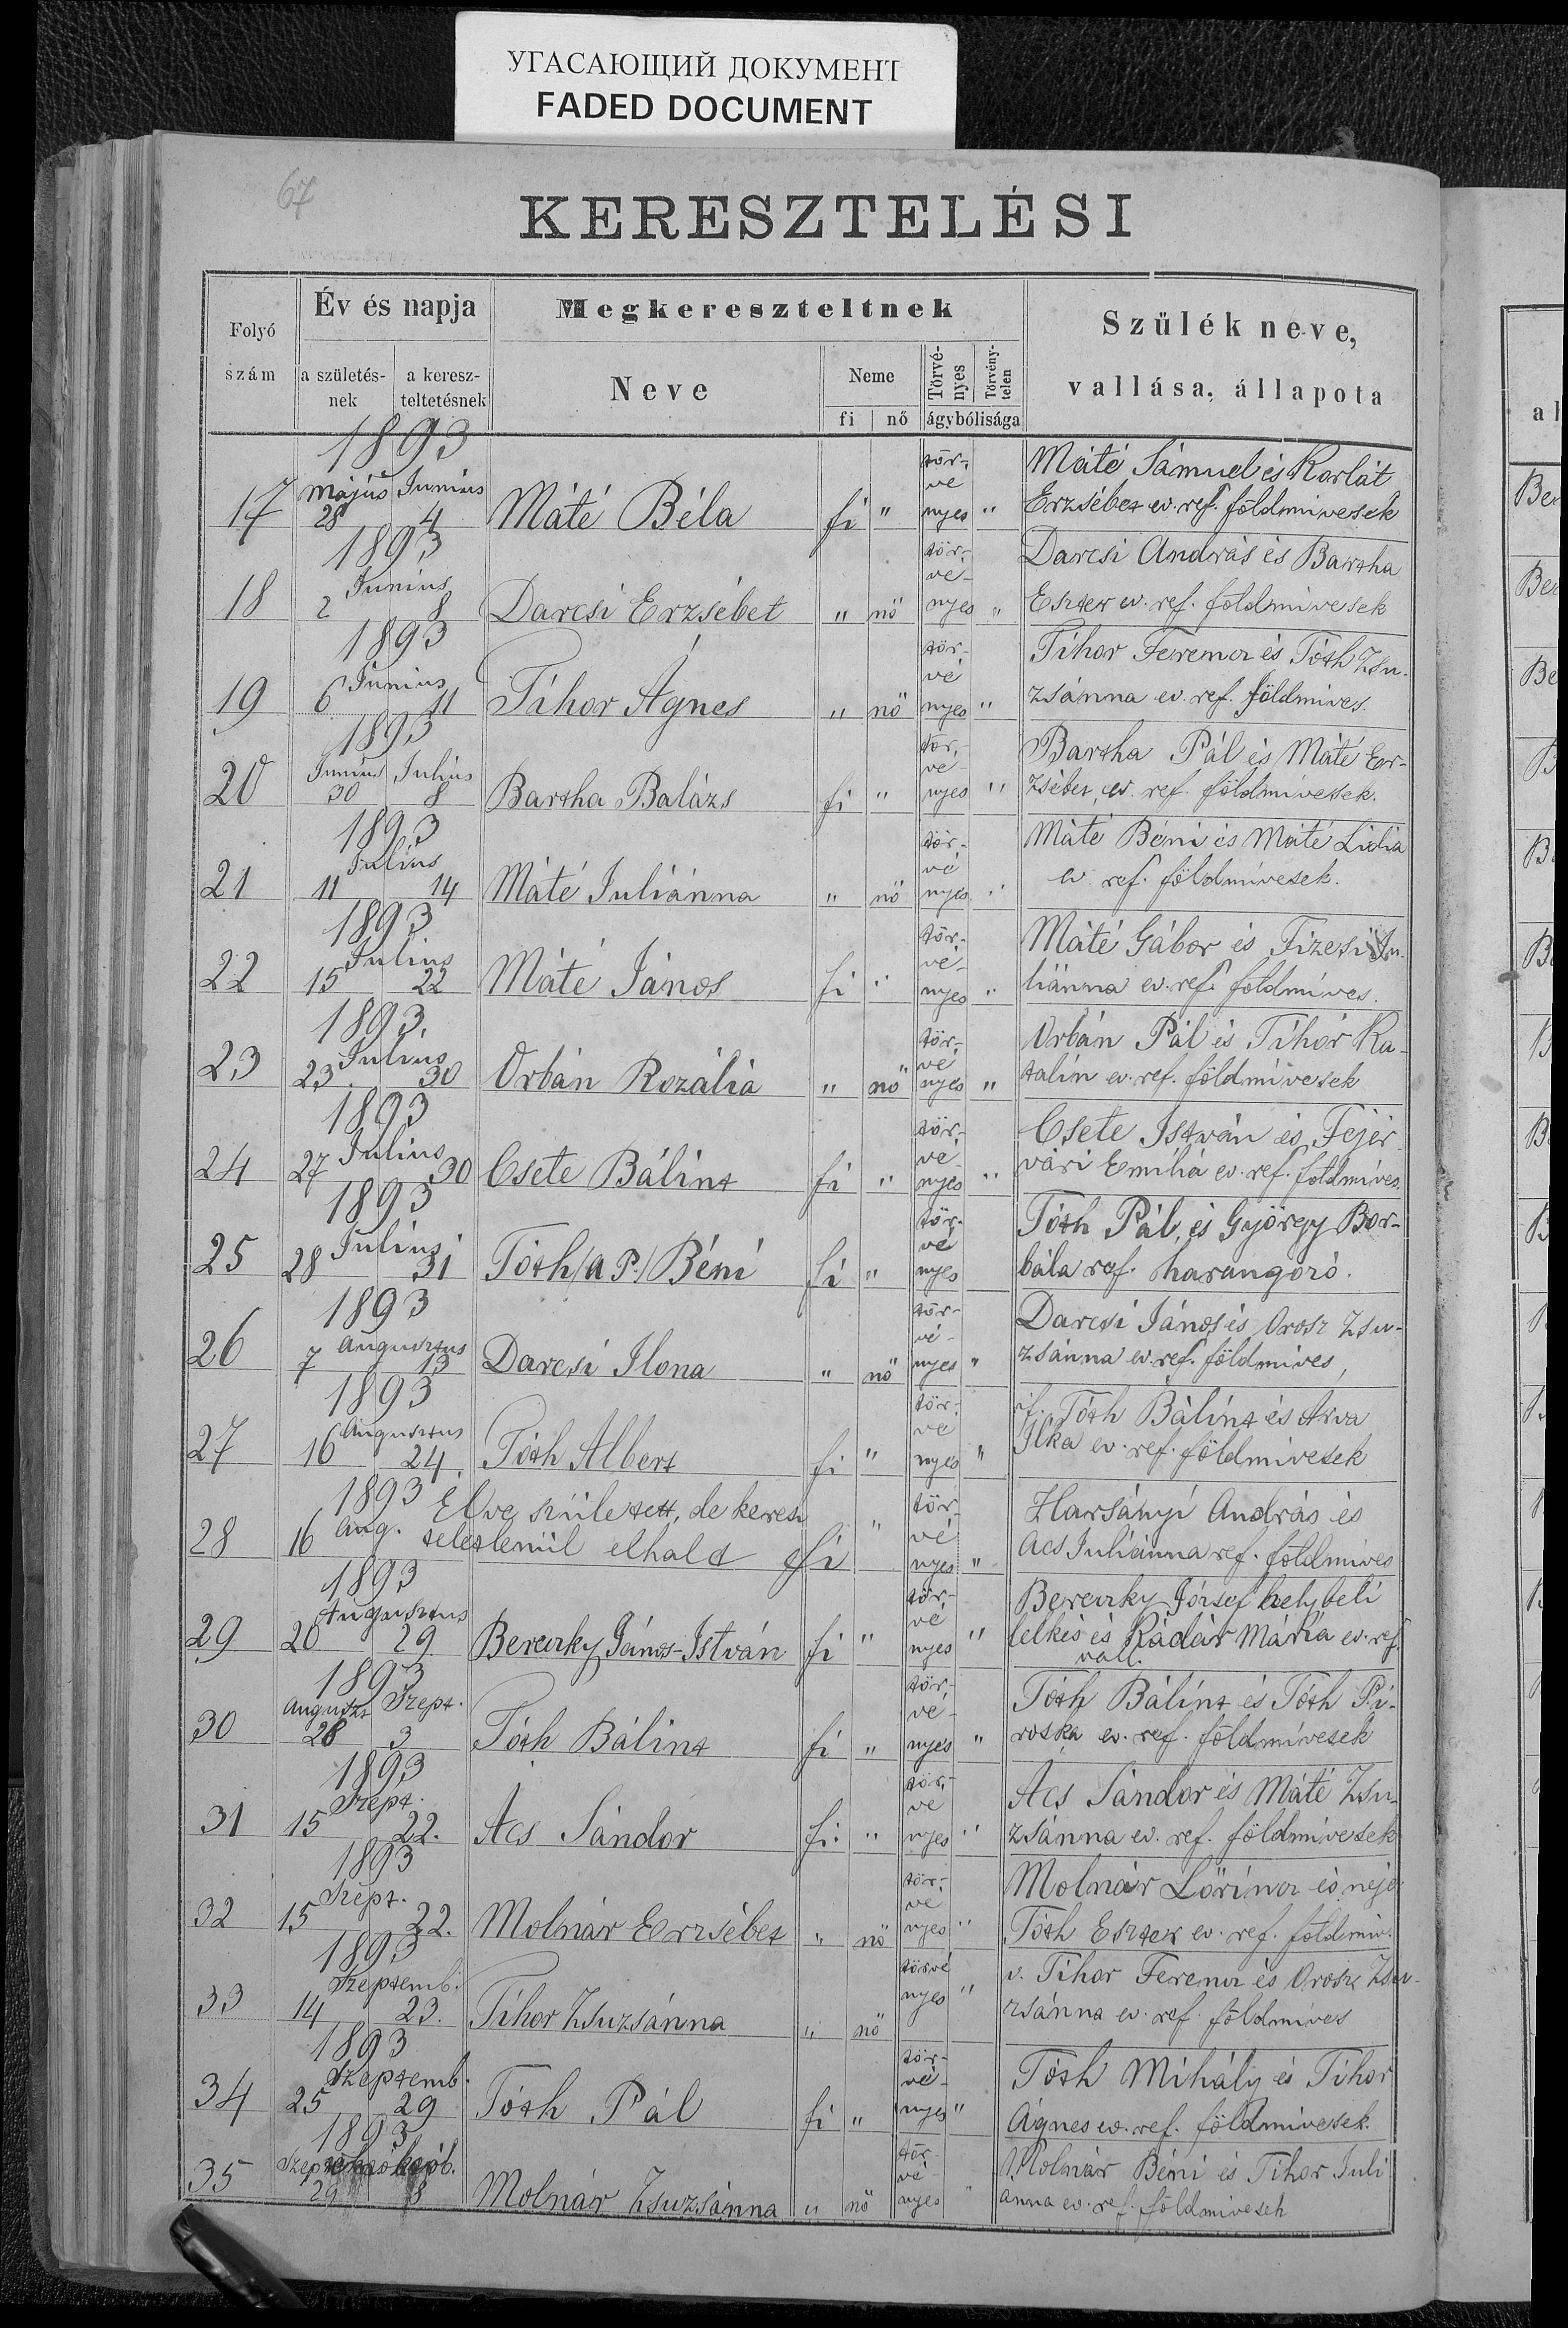 УГАСАЮЩИЙ ДОКУМЕНТ
FADED DOCUMENT
67
KERESZTELÉSI
Folyó szám
Év és napja
a születés-nek
a keresz-teltetésnek
Megkereszteltnek
Neve
Neme
fi
nő
Törvé-nyes
Törvény-telen
ágybólisága
Szülék neve,
vallása, állapota
1893
17 május 28 Junius 4 Máté Béla fi " tör-vé nyes " Máté Sámuel és Korlát
Erzsébet ev. ref. földmivesek
1893
18 2 Junius 8 Darcsi Erzsébet " nő tör-vé-nyes " Darcsi András és Bartha
Eszter ev. ref. földmivesek
1893
19 6 Junius 11 Tihor Ágnes " nő tör-vé nyes " Tihor Ferencz és Tóth Zsu-
zsánna ev. ref. földmives.
1893
20 Junius 30 Julius 8 Bartha Balázs fi " tör-vé-nyes " Bartha Pál és Máté Er-
zsébet, ev. ref. földmivesek.
1893
21 11 Julius 14 Máté Juliánna " nő tör-vé nyes " Máté Béni és Máté Lidia
ev. ref. földmivesek.
1893
22 15 Julius 22 Máté János fi " tör-vé-nyes " Máté Gábor és Fizesi Ju-
liánna ev. ref. földmives.
1893.
23 23 Julius 30 Orbán Rozália " nő tör-vé nyes " Orbán Pál és Tihor Ka-
talin ev. ref. földmivesek
1893
24 27 Julius 30 Csete Bálint fi " tör-vé nyes " Csete István és Fejér
vári Emilia ev. ref. földmives.
1893
25 28 Julius 31 Tóth /a P./ Béni fi " tör-vé nyes Tóth Pál, és György Bor-
bála ref. harangozó.
1893
26 7 Augusztus 13 Darcsi Ilona " nő tör-vé-nyes " Darcsi János és Orosz Zsu-
zsánna ev. ref. földmives,
1893
27 16 Augusztus 24 Tóth Albert fi " tör-vé nyes " if. Tóth Bálint és Árva
Ilka ev. ref. földmivesek
1893
28 16 Aug. Élve született, de keresz
teletlenül elhalt fi " tör-vé nyes " Harsányi András és
Acs Juliánna ref. földmives
1893
29 20 Augusztus 29 Bereczky János-István fi " tör-vé nyes " Bereczky József helybeli
lelkés és Kádár Mária ev. ref.
vall.
1893
30 Auguszt 28 Szept. 3 Tóth Bálint fi " tör-vé-nyes " Tóth Bálint és Tóth Pi-
roska ev. ref. földmivesek
1893
31 15 Szept. 22. Acs Sándor fi. " tör-vé nyes " Acs Sándor és Máté Zsu-
zsánna ev. ref. földmivesek
1893
32 15 Szept. 22. Molnár Erzsébet " nő tör-vé nyes " Molnár Lőrincz és neje
Tóth Eszter ev. ref. földmiv.
1893
33 14 Szeptemb. 23. Tihor Zsuzsánna " nő törvé nyes " v. Tihor Ferencz és Orosz Zsu-
zsánna ev. ref. földmives
1893
34 25 Szeptemb. 29 Tóth Pál fi " tör-vé-nyes " Tóth Mihály és Tihor
Ágnes ev. ref. földmivesek.
1893
35 29 8 Molnár Zsuzsánna " nő tör-vé-nyes " Molnár Béni és Tihor Juli
anna ev. ref. földmivesek